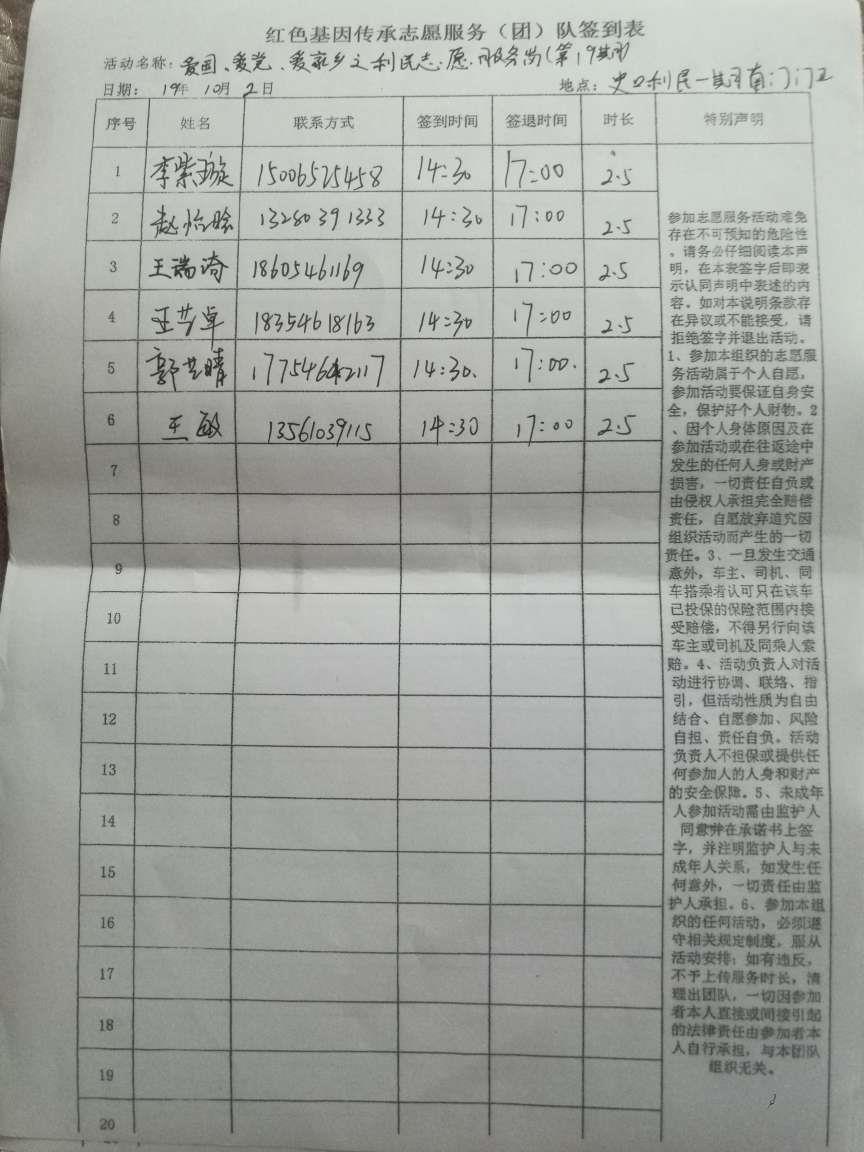 红色基因传承志愿服务（团）队签到表
活动名称：爱国、爱党、爱家乡之利民志愿服务岗（第19期）
日期： 19年 10月 2日 地点：史口利民一期南门门卫
序号 姓名 联系方式 签到时间 签退时间 时长 特别声明
1 李紫璇 15006525458 14:30 17:00 2.5
2 赵怡晗 13280391333 14:30 17:00 2.5
3 王瑞涛 18605461169 14:30 17:00 2.5
4 王艺卓 18354618163 14:30 17:00 2.5
5 郭艺晴 14:30. 17:00. 2.5
6 王敏 13561039115 14:30 17:00 2.5
7
8
9
10
11
12
13
14
15
16
17
18
19
20
参加志愿服务活动难免
存在不可预知的危险性
。请务必仔细阅读本声
明，在本表签字后即表
示认同声明中表述的内
容。如对本说明条款存
在异议或不能接受，请
拒绝签字并退出活动。
1、参加本组织的志愿服
务活动属于个人自愿，
参加活动要保证自身安
全，保护好个人财物。2
、因个人身体原因及在
参加活动或在往返途中
发生的任何人身或财产
损害，一切责任自负或
由侵权人承担完全赔偿
责任，自愿放弃追究因
组织活动而产生的一切
责任。3、一旦发生交通
意外，车主、司机、同
车搭乘者认可只在该车
已投保的保险范围内接
受赔偿，不得另行向该
车主或司机及同乘人索
赔。4、活动负责人对活
动进行协调、联络、指
引，但活动性质为自由
结合、自愿参加、风险
自担、责任自负。活动
负责人不担保或提供任
何参加人的人身和财产
的安全保障。5、未成年
人参加活动需由监护人
同意并在承诺书上签
字，并注明监护人与未
成年人关系，如发生任
何意外，一切责任由监
护人承担。6、参加本组
织的任何活动，必须遵
守相关规定制度，服从
活动安排；如有违反，
不予上传服务时长，清
理出团队，一切因参加
者本人直接或间接引起
的法律责任由参加者本
人自行承担，与本团队
组织无关。